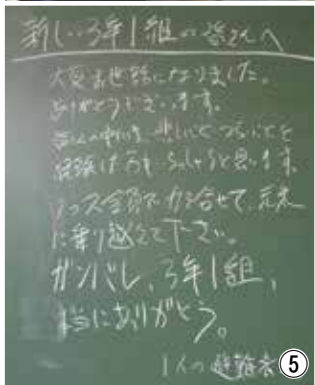 新しい3年1組の皆さんへ
大変お世話になりました。
ありがとうございます。
皆さんの中にも悲しいことつらいことを
経験した方もいらっしゃると思います。
クラス全員で力を合せて、元気
に乗り越えて下さい。
ガンバレ、3年1組、
本当にありがとう。
1人の避難者
⑤